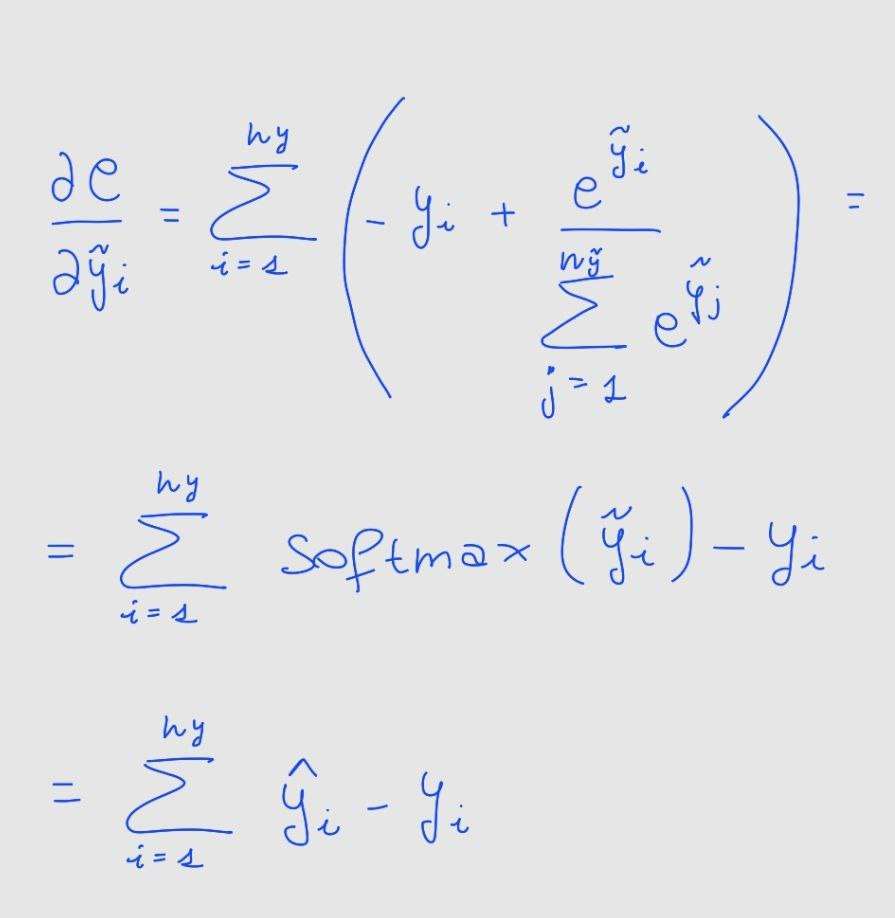 ∂e/∂ỹᵢ = ∑_{i=1}^{ny} ( - yᵢ + e^{ỹᵢ} / ∑_{j=1}^{nỹ} e^{ỹⱼ} ) =
= ∑_{i=1}^{ny} softmax (ỹᵢ) - yᵢ
= ∑_{i=1}^{ny} ŷᵢ - yᵢ